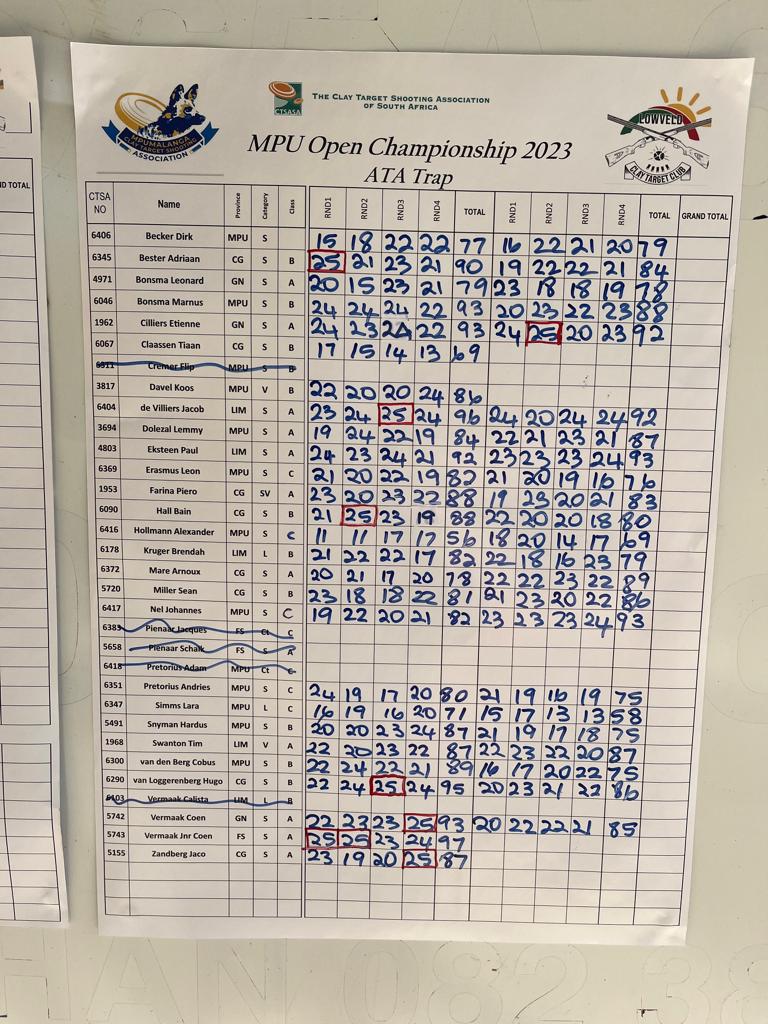 MPUMALANGA
CLAY TARGET SHOOTING
ASSOCIATION
CTSASA
THE CLAY TARGET SHOOTING ASSOCIATION
OF SOUTH AFRICA
LOWVELD
CLAY TARGET CLUB
MPU Open Championship 2023
ATA Trap
D TOTAL
CTSA NO Name Province Category Class RND1 RND2 RND3 RND4 TOTAL RND1 RND2 RND3 RND4 TOTAL GRAND TOTAL
6406 Becker Dirk MPU S 15 18 22 22 77 16 22 21 20 79
6345 Bester Adriaan CG S B 25 21 23 21 90 19 22 22 21 84
4971 Bonsma Leonard GN S A 20 15 23 21 79 23 18 18 19 78
6046 Bonsma Marnus MPU S B 24 24 24 22 93 20 23 22 23 88
1962 Cilliers Etienne GN S A 24 23 24 22 93 24 25 20 23 92
6067 Claassen Tiaan CG S B 17 15 14 13 69
6311 Cremer Flip MPU S B
3817 Davel Koos MPU V B 22 20 20 24 86
6404 de Villiers Jacob LIM S A 23 24 25 24 96 24 20 24 24 92
3694 Dolezal Lemmy MPU S A 19 24 22 19 84 22 21 23 21 87
4803 Eksteen Paul LIM S A 24 23 24 21 92 23 23 23 24 93
6369 Erasmus Leon MPU S C 21 20 22 19 82 21 20 19 16 76
1953 Farina Piero CG SV A 23 20 23 22 88 19 23 20 21 83
6090 Hall Bain CG S B 21 25 23 19 88 22 20 20 18 80
6416 Hollmann Alexander MPU S C 11 11 17 17 56 18 20 14 17 69
6178 Kruger Brendah LIM L B 21 22 22 17 82 22 18 16 23 79
6372 Mare Arnoux CG S A 20 21 17 20 78 22 22 23 22 89
5720 Miller Sean CG S B 23 18 18 22 81 21 23 20 22 86
6417 Nel Johannes MPU S C 19 22 20 21 82 23 23 23 24 93
6383 Pienaar Jacques FS Ct C
5658 Pienaar Schalk FS S A
6418 Pretorius Adam MPU Ct C
6351 Pretorius Andries MPU S C 24 19 17 20 80 21 19 16 19 75
6347 Simms Lara MPU L C 16 19 16 20 71 15 17 13 13 58
5491 Snyman Hardus MPU S B 20 20 23 24 87 21 19 17 18 75
1968 Swanton Tim LIM V A 22 20 23 22 87 22 23 22 20 87
6300 van den Berg Cobus MPU S B 22 24 22 21 89 16 17 20 22 75
6290 van Loggerenberg Hugo CG S B 22 24 25 24 95 20 23 21 22 86
6103 Vermaak Calista LIM L B
5742 Vermaak Coen GN S A 22 23 23 25 93 20 22 22 21 85
5743 Vermaak Jnr Coen FS S A 25 25 23 24 97
5155 Zandberg Jaco CG S A 23 19 20 25 87